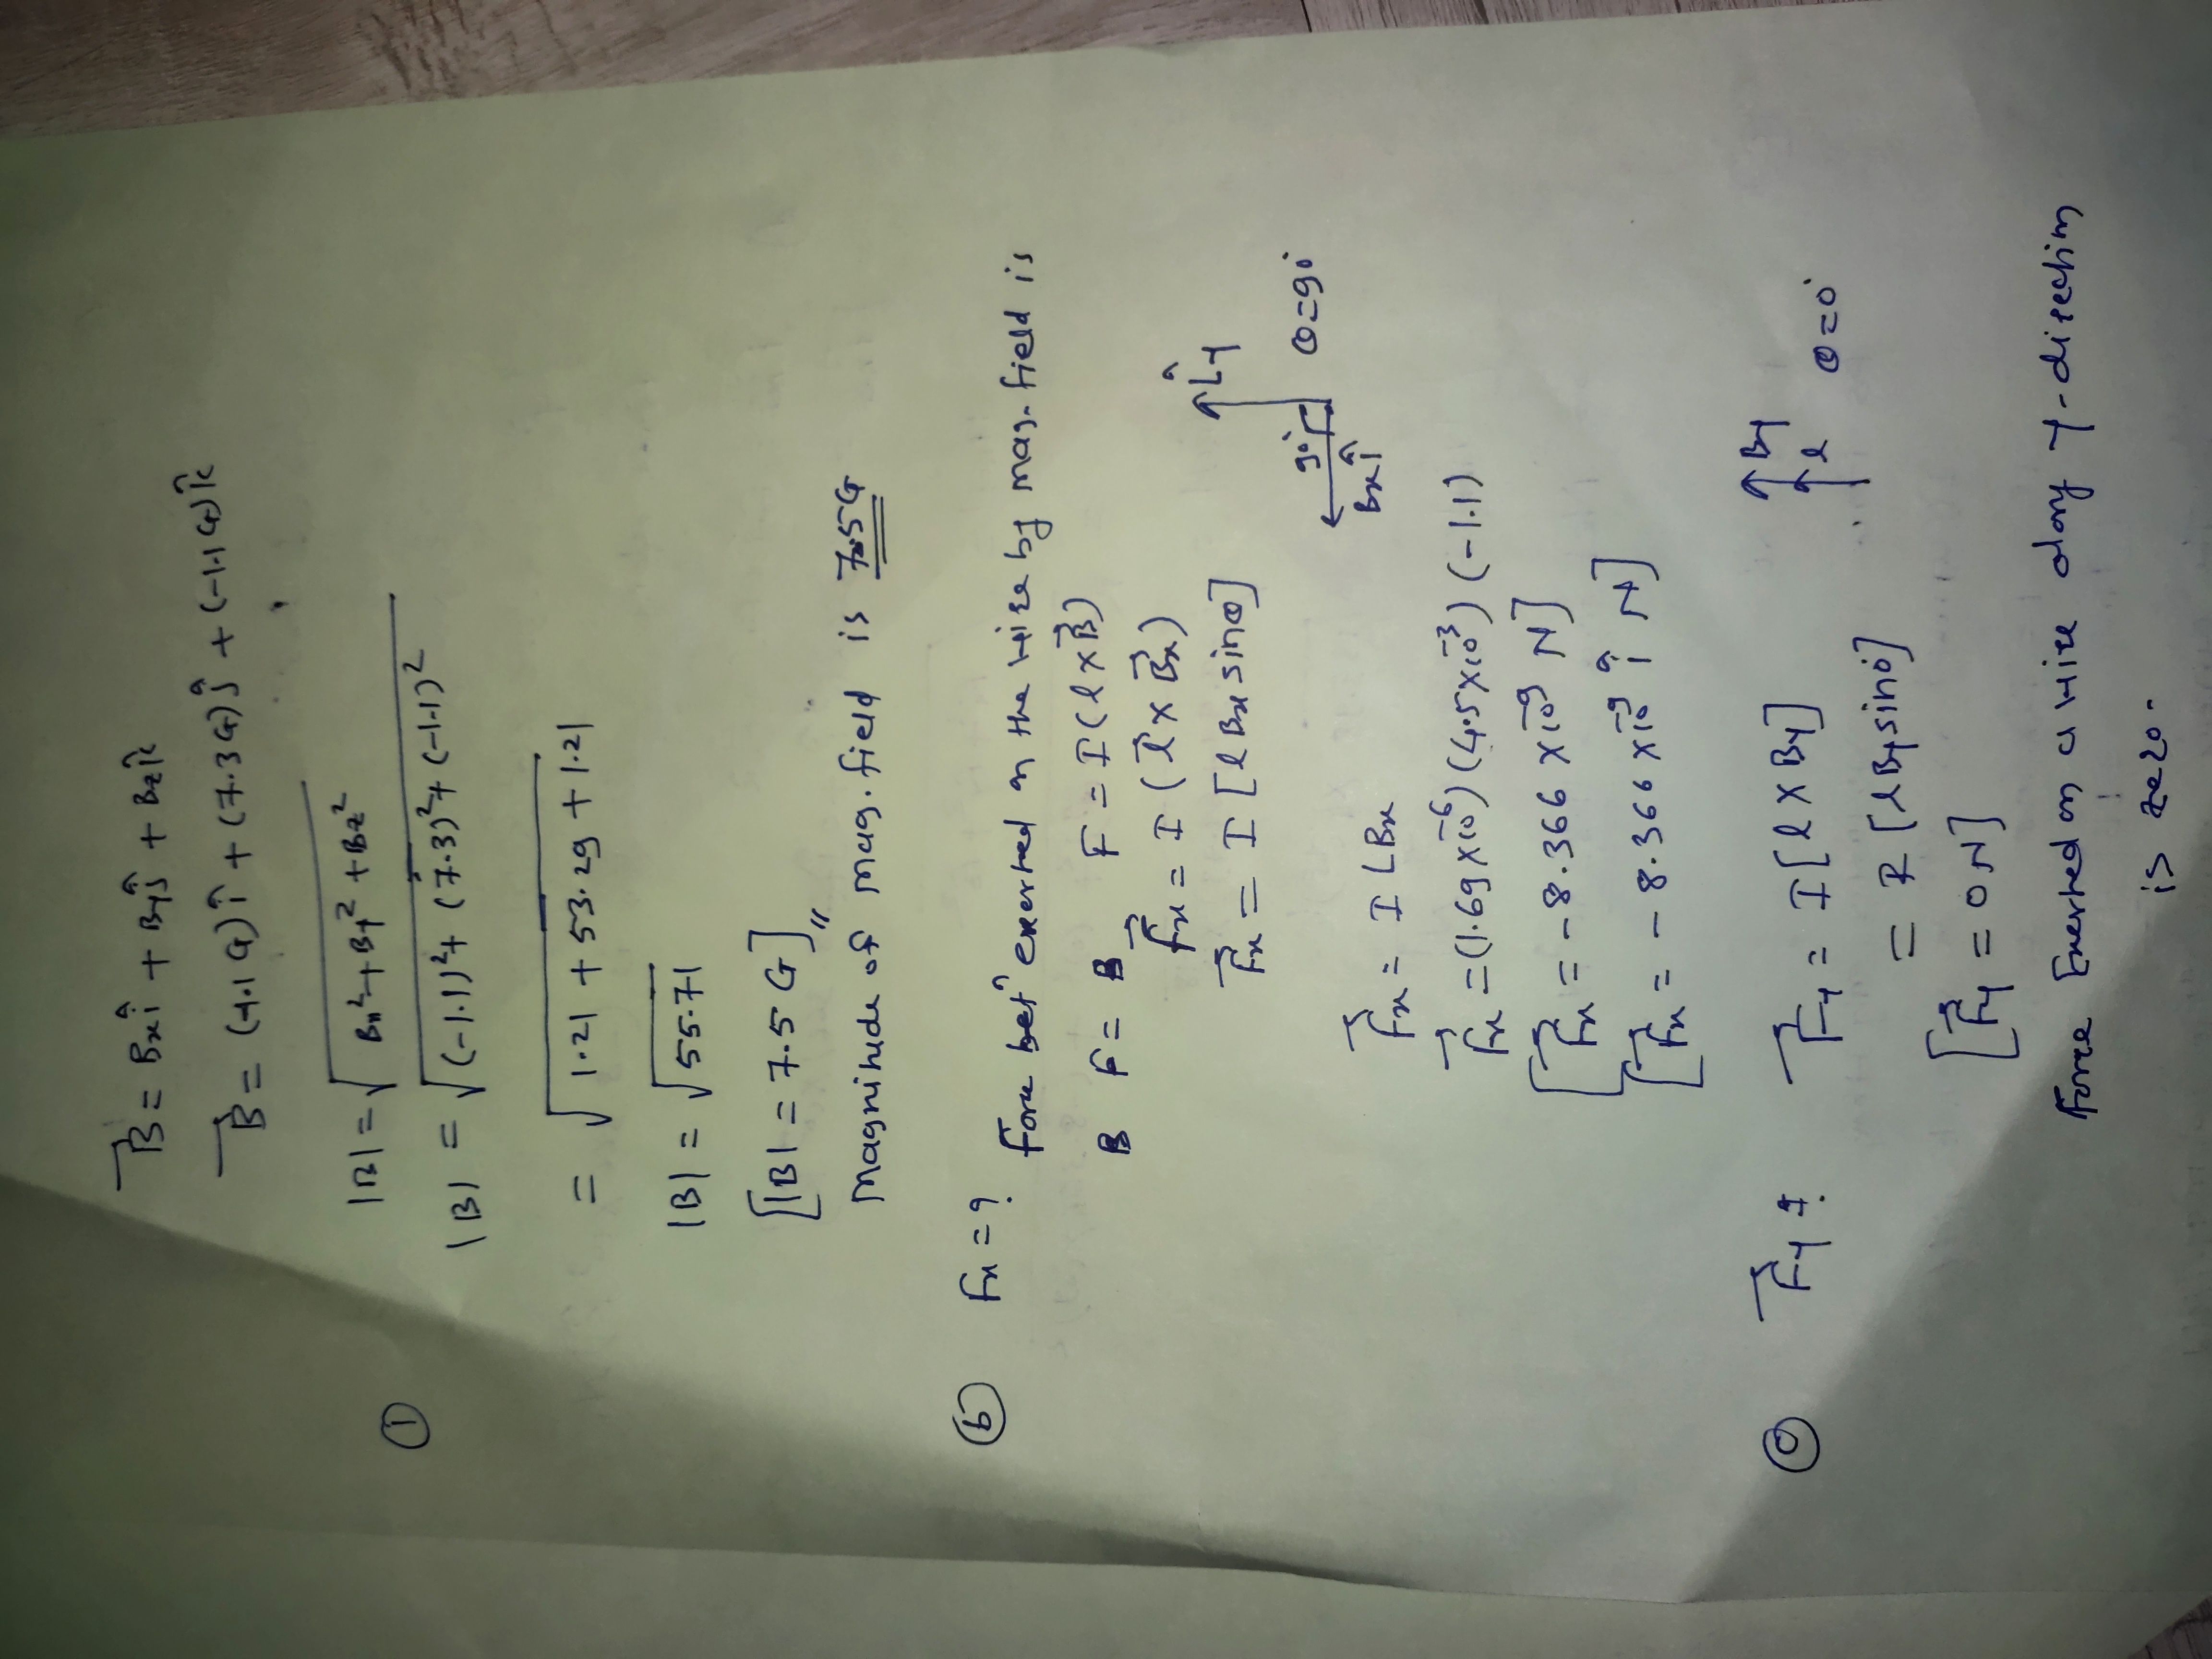 B⃗ = Bxî + Byĵ + Bzk̂
B⃗ = (-1.1 G)î + (7.3 G)ĵ + (-1.1 G)k̂
① |B| = √Bx² + By² + Bz²
|B| = √(-1.1)² + (7.3)² + (-1.1)²
= √1.21 + 53.29 + 1.21
|B| = √55.71
[|B| = 7.5 G]
Magnitude of mag. field is 7.5 G
ⓑ Fx = ? Force betⁿ exerted on the wire by mag. field is
B F = B F = I(l × B⃗)
F⃗x = I (l⃗ × B⃗x)
F⃗x = I [l Bx sinθ]
Lŷ
90°
Bxî
θ = 90°
F⃗x = I L Bx
F⃗x = (1.69 × 10⁻⁶) (4.5 × 10⁻³) (-1.1)
[F⃗x = -8.366 × 10⁻⁹ N]
[F⃗x = -8.366 × 10⁻⁹ î N]
ⓒ F⃗y ? F⃗y = I [l × By]
By
l
θ = 0°
= I [l By sin 0°]
[F⃗y = 0 N]
Force Exerted on a wire along y-direction
is zero.